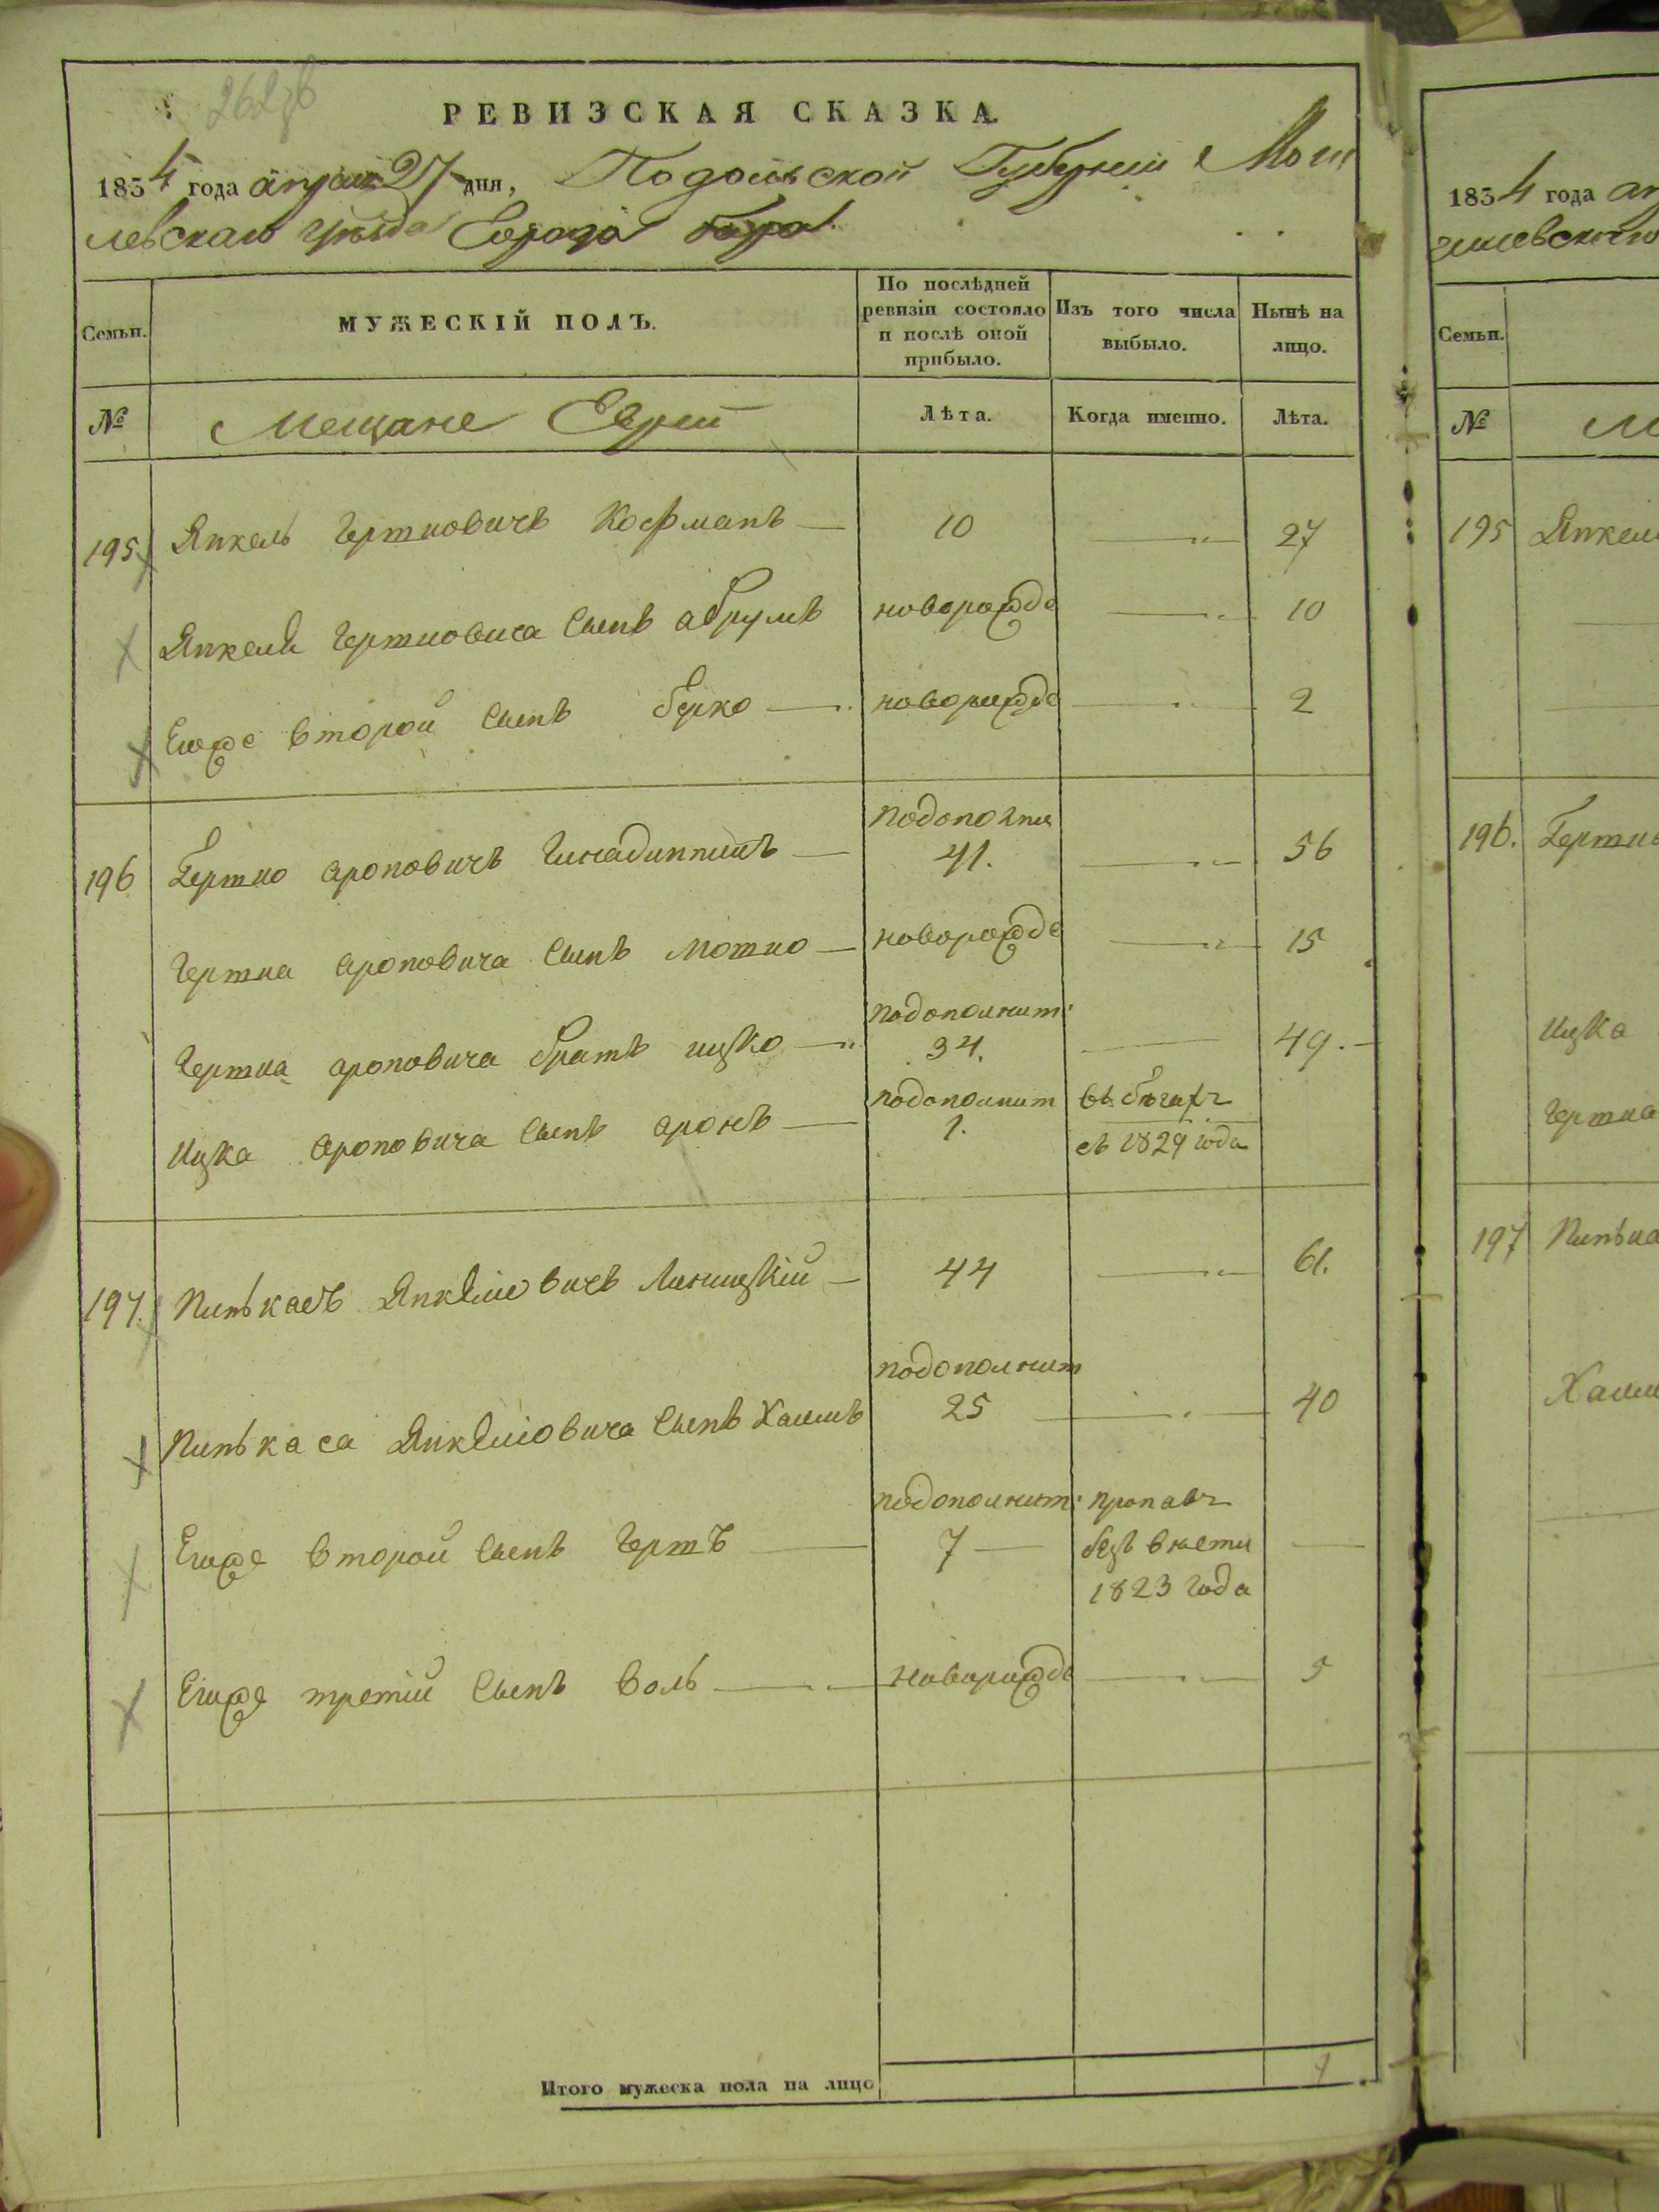 РЕВИЗСКАЯ СКАЗКА.
1834 года апреля 27 дня, Подольской Губернии Моги
левскаго уѣзда Города Бара
Семьи.
МУЖЕСКІЙ ПОЛЪ.
По послѣдней
ревизіи состояло
и послѣ оной
прибыло.
Изъ того числа
выбыло.
Нынѣ на
лицо.
№ Мещане Евреи Лѣта. Когда именно. Лѣта.
195 Янкель Гершковичъ Кофманъ 10 27
Янкеля Гершковича сынъ Абрумъ новорожде 10
Егоже второй сынъ Берко новорожде 2
196 Гершко Ароновичъ подополни 41. 56
Гершка Ароновича сынъ Мошко новорожде 15
Гершка Ароновича братъ Ицко подополнит: 34. 49.
Ицка Ароновича сынъ Аронъ подополнит 1. въ бѣгахъ
съ 1829 года
197. Пинькасъ Янкелевичъ Линицкій 44 61.
Пинькаса Янкеліовича сынъ Хаимъ подополнит 25 40
Егоже второй сынъ Гершъ подополнит: 7 пропавъ
безъ вѣсти
1823 года
Егоже третій сынъ Воль новорожде 5
Итого мужеска пола на лицо
1834 года ап
гилевского
Семьи.
№ М
195 Янкеля
196. Гершко
Ицка
Гершка
197 Пинька
Хаим